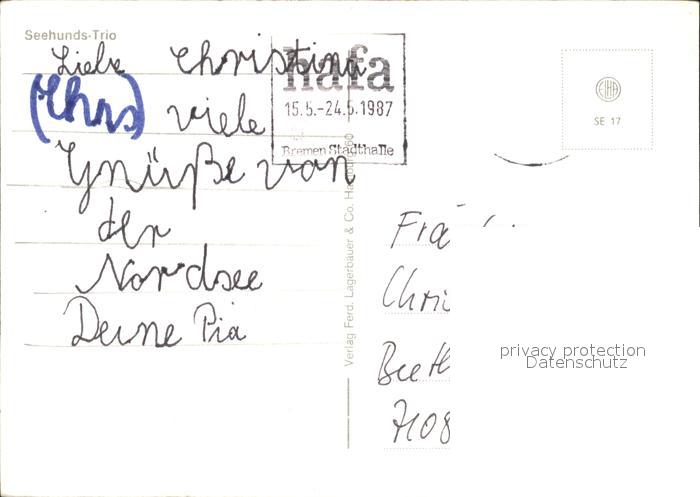 Seehunds-Trio
Liebe Christina
(Chrs) viele
Grüße von
der
Nordsee
Deine Pia
hafa
15.5.-24.5.1987
Bremen Stadthalle
Verlag Ferd. Lagerbauer & Co. Hamburg 60
EHA
SE 17
Frä
Chri
Beeth
7108
privacy protection
Datenschutz